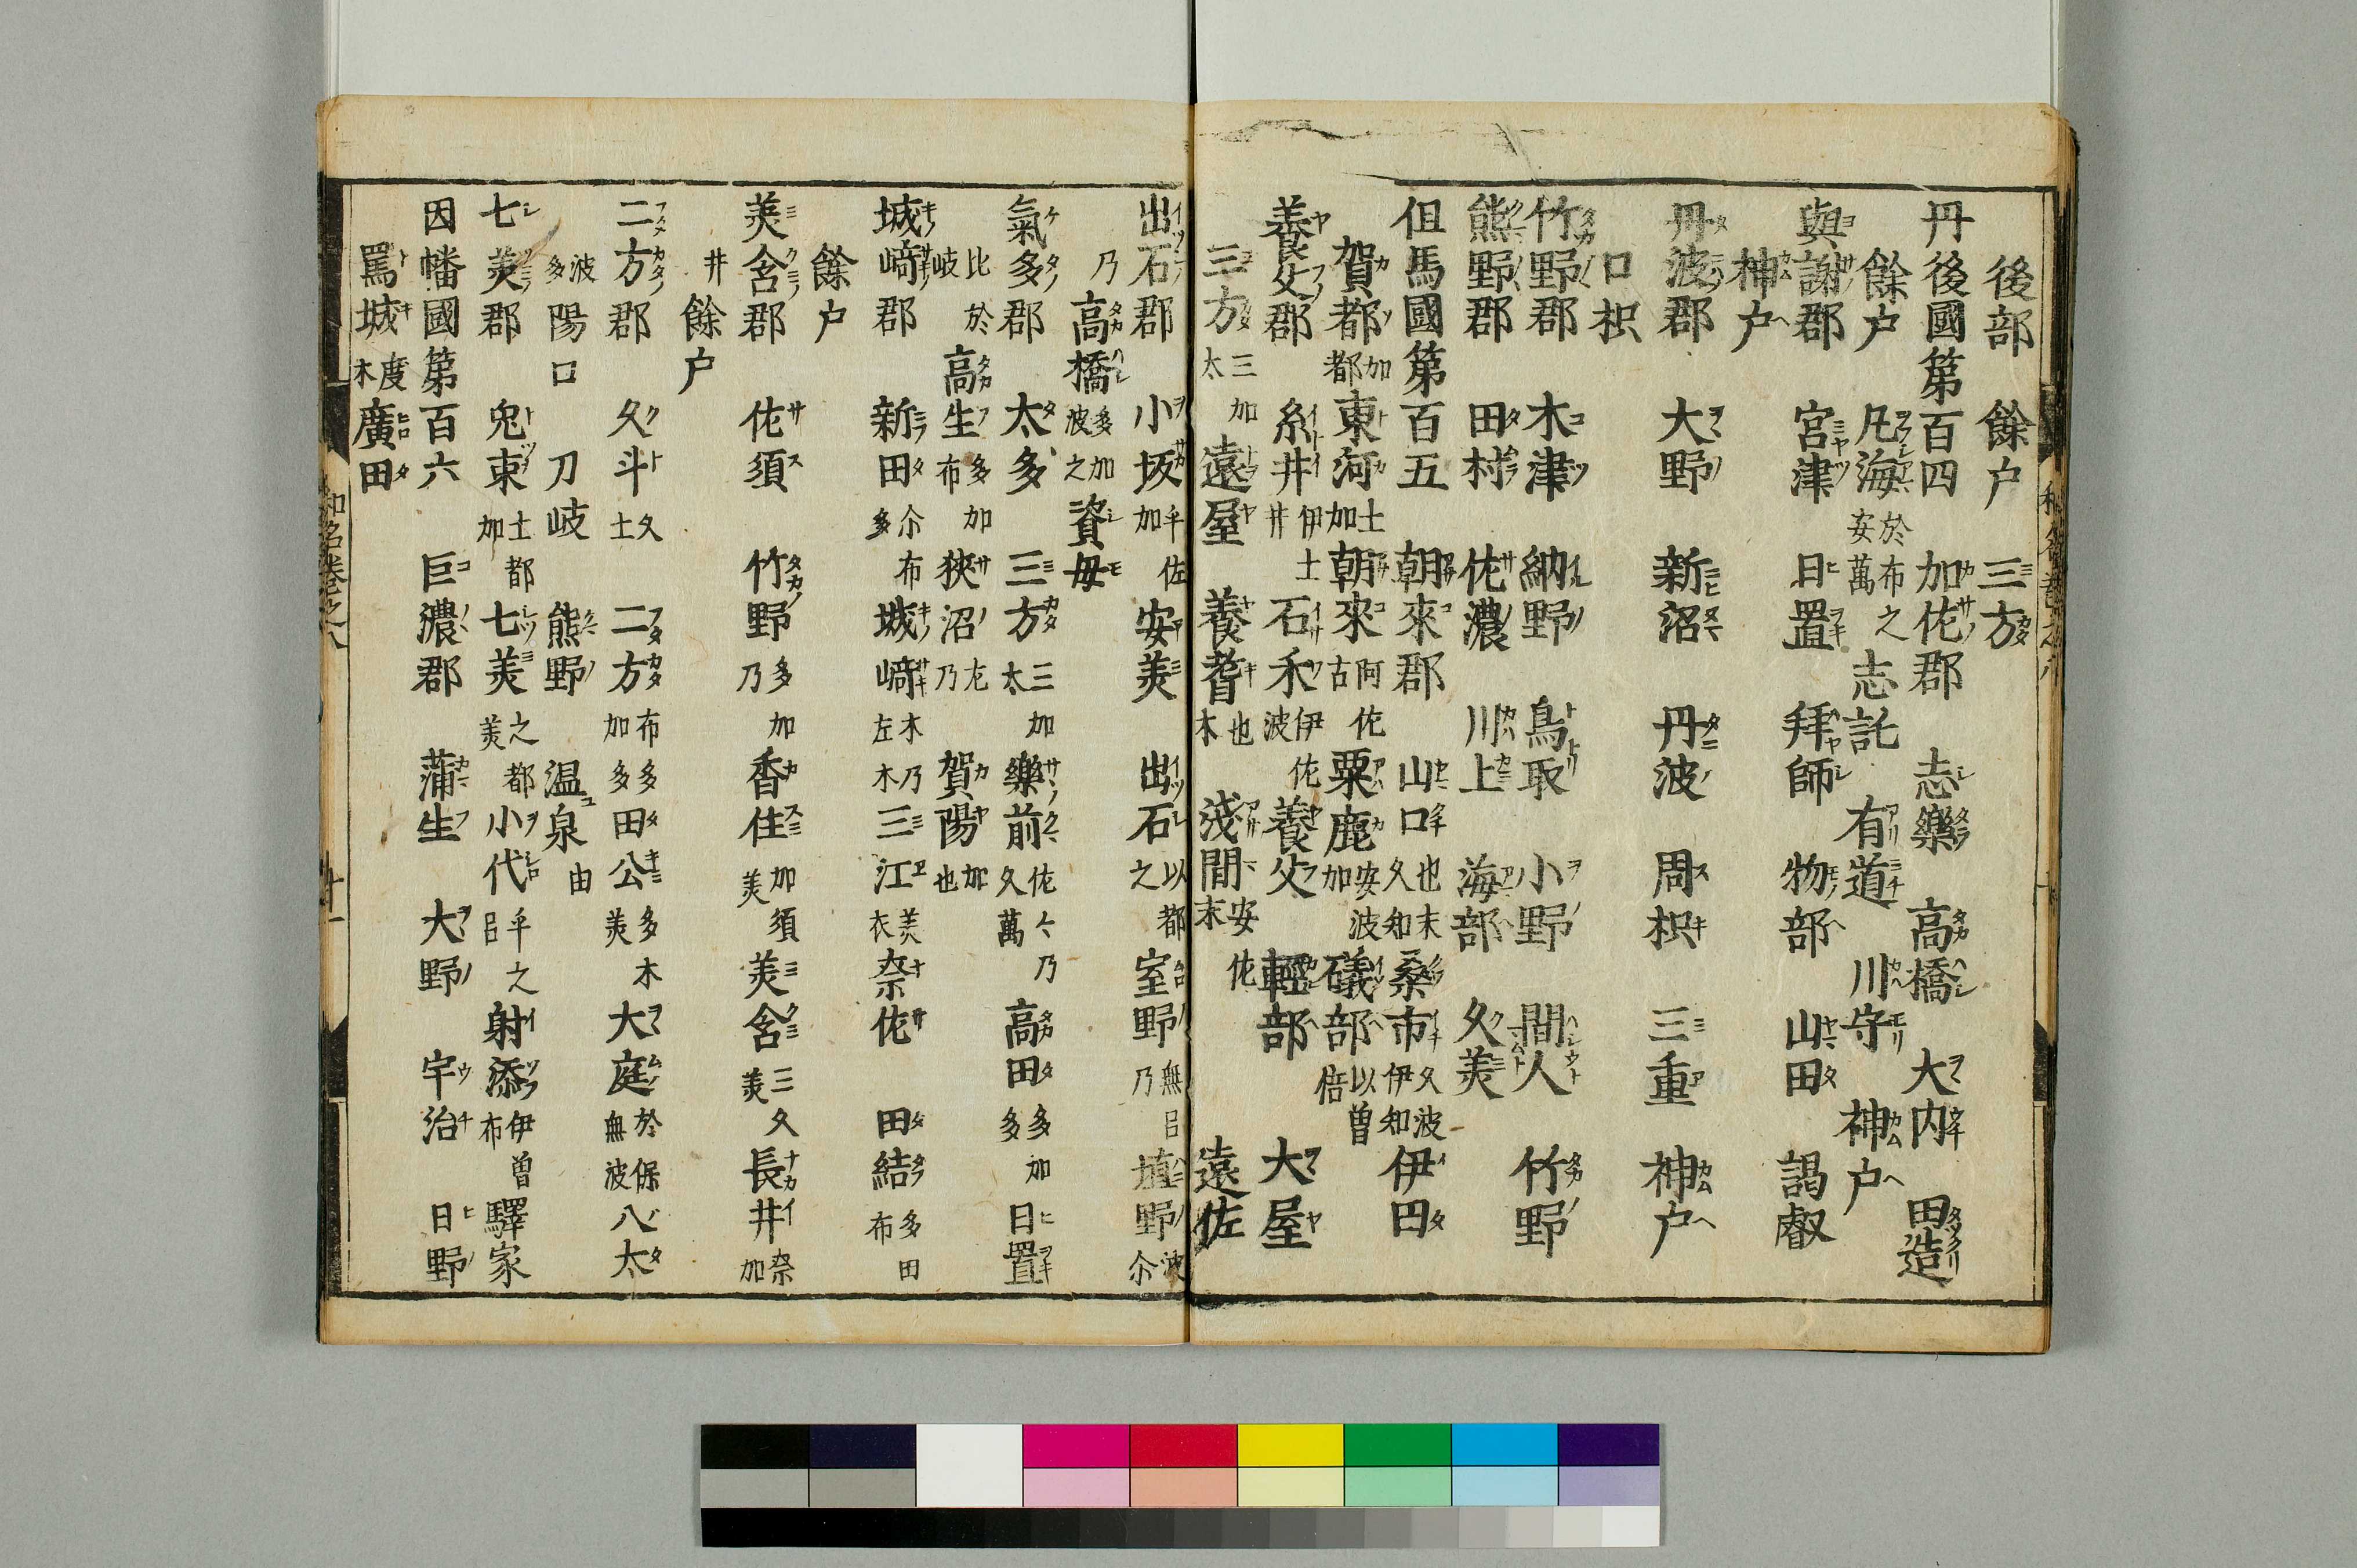 後部 餘戸 三方
丹後國第百四 加佐郡 志樂 高橋 大内 田造
餘戸 凡海於布之安萬 志託 有道 川守 神戸
與謝郡 宮津 日置 拜師 物部 山田 謁叡
神戸
丹波郡 大野 新沼 丹波 周枳 三重 神戸
口枳
竹野郡 木津 納野 鳥取 小野 間人 竹野
熊野郡 田村 佐濃 川上 海部 久美
但馬國第百五 朝來郡 山口也末久知 桑市久波伊知 伊田
賀都加都 東河土加 朝來阿佐古 粟鹿安波加 礒部以曽倍
養父郡 糸井伊土井 石禾伊佐波 養父 輕部 大屋
三方三加太 遠屋 養耆也木 浅間安佐末 遠佐
出石郡 小坂乎佐加 安美 出石以都之 室野無呂乃 埴野波尒
乃 高橋多加波之 資母
氣多郡 太多 三方三加太 樂前佐々乃久萬 高田多加多 日置
比於岐 高生多加布 狹沼左乃 賀陽加也
城﨑郡 新田尒布多 城﨑木乃左木 三江美衣 奈佐 田結多田布
餘戸
美含郡 佐須 竹野多加乃 香住加須美 美含三久美 長井奈加
井 餘戸
二方郡 久斗久土 二方布多加多 田公多木美 大庭於保無波 八太
波多 陽口 刀岐 熊野 温泉由
七美郡 兎束土都加 七美之都美 小代乎之呂 射添伊曽布 驛家
因幡國第百六 巨濃郡 蒲生 大野 宇治 日野
罵城度木 廣田
和名卷之八 十一